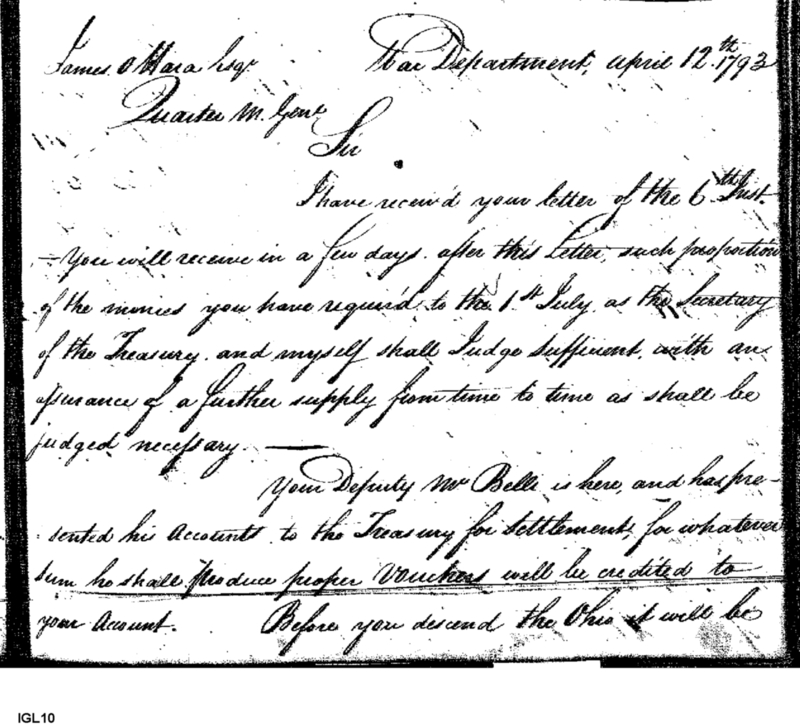 James O Hara Esqr. War Department, april 12th 1793
Quarter M. Genl
Sir
I have receiv'd your letter of the 6th Inst.
— You will receive in a few days after this Letter, such proportion
of the monies you have requir'd to the 1st July as the Secretary
of the Treasury and myself shall Judge Sufficient, with an
assurance of a further supply from time to time as shall be
judged necessary. —
Your Deputy Mr Belli is here, and has pre-
sented his Accounts to the Treasury for Settlement, for whatever
sum he shall produce proper Vouchers will be credited to
your Account. Before you descend the Ohio it will be
IGL10